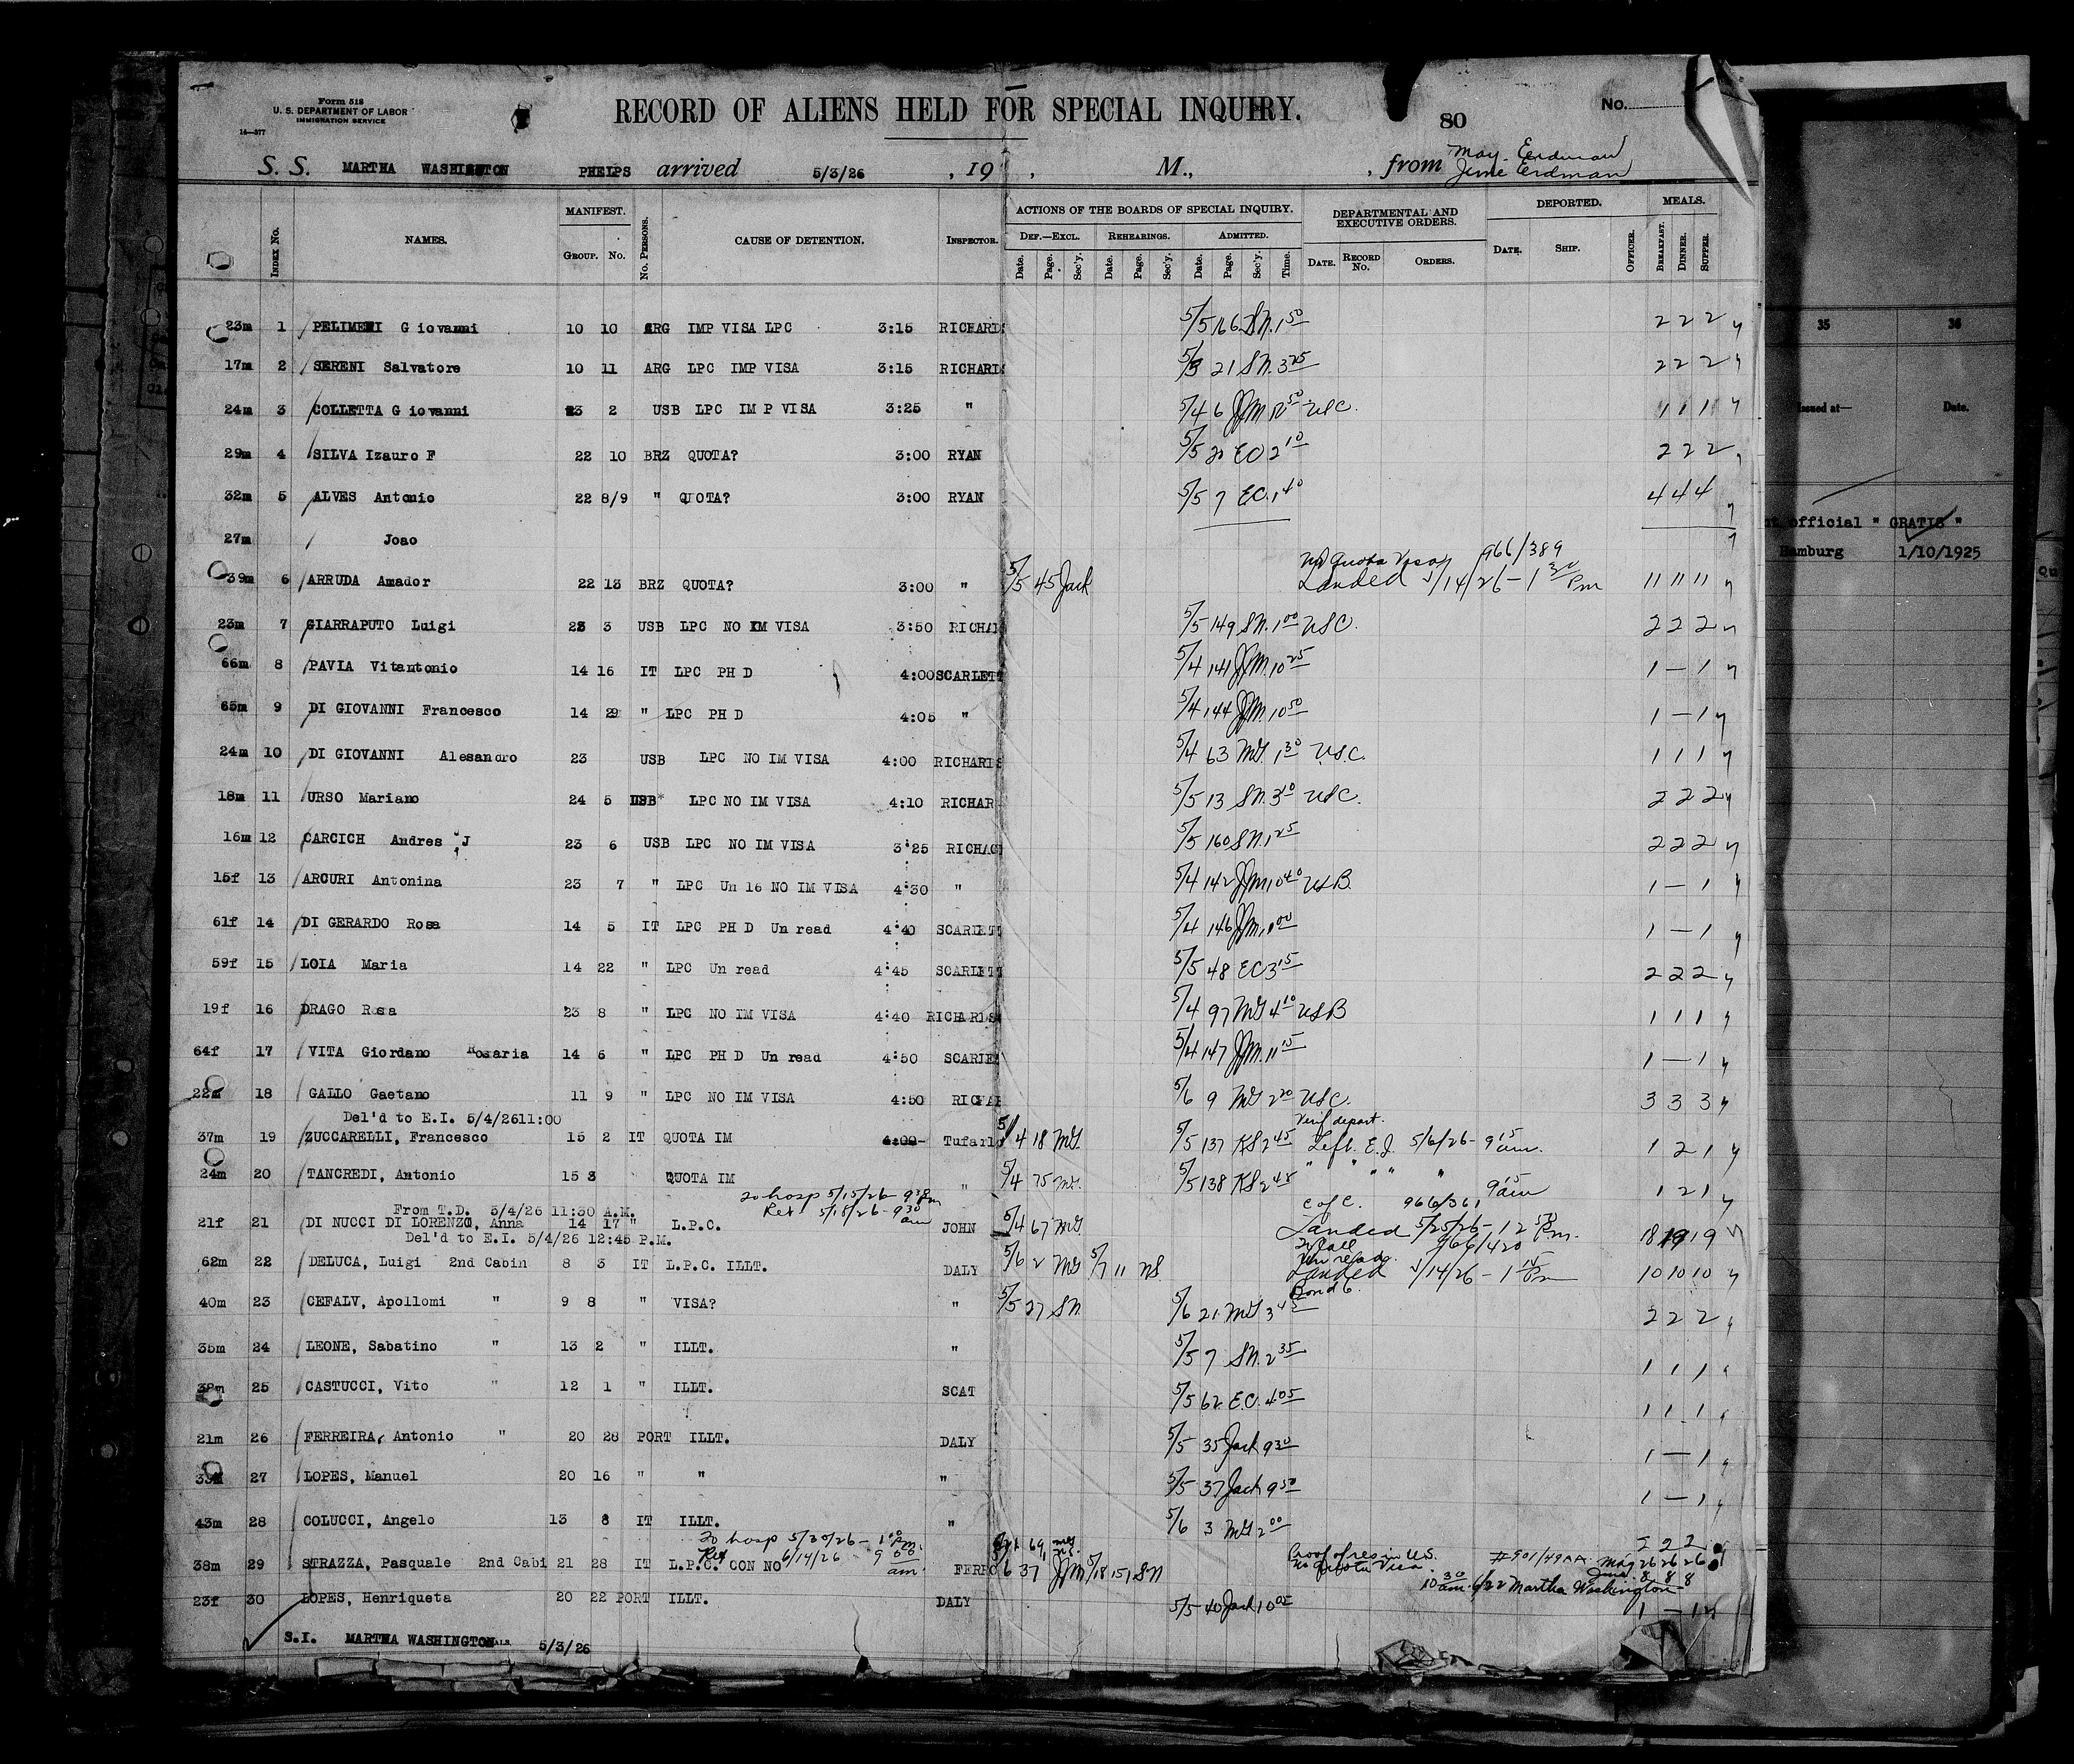 Form 518
U. S. DEPARTMENT OF LABOR
IMMIGRATION SERVICE
14—377
RECORD OF ALIENS HELD FOR SPECIAL INQUIRY.
80
No.
S. S. MARTHA WASHINGTON PHELPS arrived 5/3/26 , 19 , M., , from May. Eerdman
June Erdman
Index No. NAMES. MANIFEST. Group. No. No. Persons. CAUSE OF DETENTION. Inspector. ACTIONS OF THE BOARDS OF SPECIAL INQUIRY. Def.—Excl. Rehearings. Admitted. Date. Page. Sec'y. Date. Page. Sec'y. Date. Page. Sec'y. Time. DEPARTMENTAL AND EXECUTIVE ORDERS. Date. Record No. Orders. DEPORTED. Date. Ship. Officer. MEALS. Breakfast. Dinner. Supper.
23m 1 PELIMENI Giovanni 10 10 ARG IMP VISA LPC 3:15 RICHARDS 5/5 166 SN. 1 50 2 2 2
17m 2 SERENI Salvatore 10 11 ARG LPC IMP VISA 3:15 RICHARDS 5/3 21 SN. 3 25 2 2 2
24m 3 COLLETTA Giovanni 23 2 USB LPC IM P VISA 3:25 " 5/4 6 JJM 50 USC. 1 1 1
29m 4 SILVA Izauro F 22 10 BRZ QUOTA? 3:00 RYAN 5/5 20 EC 2 10 2 2 2
32m 5 ALVES Antonio 22 8/9 " QUOTA? 3:00 RYAN 5/5 7 EC. 1 40 4 4 4
27m Joao
No Quota Visa 966/389
39m 6 ARRUDA Amador 22 13 BRZ QUOTA? 3:00 " 5/5 45 Jack Landed 5/14/26 - 1 30 Pm 11 11 11
23m 7 GIARRAPUTO Luigi 23 3 USB LPC NO IM VISA 3:50 RICHA 5/5 149 SN. 1 00 USC. 2 2 2
66m 8 PAVIA Vitantonio 14 16 IT LPC PH D 4:00 SCARLETT 5/4 141 JJM. 10 25 1 — 1
65m 9 DI GIOVANNI Francesco 14 29 " LPC PH D 4:05 " 5/4 144 JJM. 10 50 1 — 1
24m 10 DI GIOVANNI Alesandro 23 USB LPC NO IM VISA 4:00 RICHARDS 5/4 63 MG. 1 30 USC. 1 1 1
18m 11 URSO Mariano 24 5 USB LPC NO IM VISA 4:10 RICHAR 5/5 13 SN. 3 10 USC. 2 2 2
16m 12 CARCICH Andres J 23 6 USB LPC NO IM VISA 3:25 RICHA 5/5 160 SN. 1 25 2 2 2
15f 13 ARCURI Antonina 23 7 " LPC Un 16 NO IM VISA 4:30 " 5/4 142 JJM 10 40 USB. 1 — 1
61f 14 DI GERARDO Rosa 14 5 IT LPC PH D Un read 4:40 SCARLETT 5/4 146 JJM. 00 1 — 1
59f 15 LOIA Maria 14 22 " LPC Un read 4:45 SCARLETT 5/5 48 EC 3 15 2 2 2
19f 16 DRAGO Rosa 23 8 " LPC NO IM VISA 4:40 RICHARDS 5/4 97 MG 4 10 USB 1 1 1
64f 17 VITA Giordano Rosaria 14 6 " LPC PH D Un read 4:50 SCARLE 5/4 147 JJM. 11 15 1 — 1
22m 18 GALLO Gaetano 11 9 " LPC NO IM VISA 4:50 RICHAR 5/6 9 MG 2 20 USC. 3 3 3
Del'd to E.I. 5/4/26 11:00 Verif depart.
37m 19 ZUCCARELLI, Francesco 15 2 IT QUOTA IM 4:00 Tufarlo 5/4 18 MG. 5/5 137 KS 2 45 Left E.I. 5/6/26 - 9 15 am. 1 2 1
24m 20 TANCREDI, Antonio 15 3 QUOTA IM " 5/4 75 MG. 5/5 138 KS 2 48 " " " " " 9 15 am 1 2 1
To hosp 5/15/26 - 9 38 Pm
From T.D. 5/4/26 11:30 A.M. Ret 5/18/26 - 9 30 am C of C. 966/361
21f 21 DI NUCCI DI LORENZO, Anna 14 17 " L.P.C. JOHN 5/4 67 MG. Landed 5/25/26 - 12 50 Pm. 18 19 19
Del'd to E.I. 5/4/26 12:45 P.M. 966/420
62m 22 DELUCA, Luigi 2nd Cabin 8 3 IT L.P.C. ILLT. DALY 5/6 2 MG 5/7 11 NS Landed 5/14/26 - 1 15 Pm 10 10 10
Bond 6.
40m 23 CEFALV, Apollomi " 9 8 " VISA? " 5/5 27 SN. 5/6 21 MG 3 45 2 2 2
35m 24 LEONE, Sabatino " 13 2 " ILLT. " 5/5 7 SN. 2 35 1 1 1
38m 25 CASTUCCI, Vito " 12 1 " ILLT. SCAT 5/5 62 E.C. 4 05 1 1 1
21m 26 FERREIRA, Antonio " 20 28 PORT ILLT. DALY 5/5 35 Jack 9 30 1 — 1
27 LOPES, Manuel 20 16 " " " 5/5 37 Jack 9 50 1 — 1
43m 28 COLUCCI, Angelo 13 8 IT ILLT. " 5/6 3 MG 2 00 2 2 2
To hosp 5/30/26 - 1 00 Pm.
Ret 6/14/26 9 00 am Proof of res in U.S.
38m 29 STRAZZA, Pasquale 2nd Cabi 21 28 IT L.P.C. CON NO FERRO 6 37 JJM 5/18 151 SN No Quota Visa May 26 26 26
June 8 8 8
10 30 am. 6/22 Martha Washington
23f 30 LOPES, Henriqueta 20 22 PORT ILLT. DALY 5/5 40 Jack 10 05 1 — 1
S.I. MARTHA WASHINGTON 5/3/26
35 36
Issued at— Date.
official " GRATIS "
Hamburg 1/10/1925
Qu